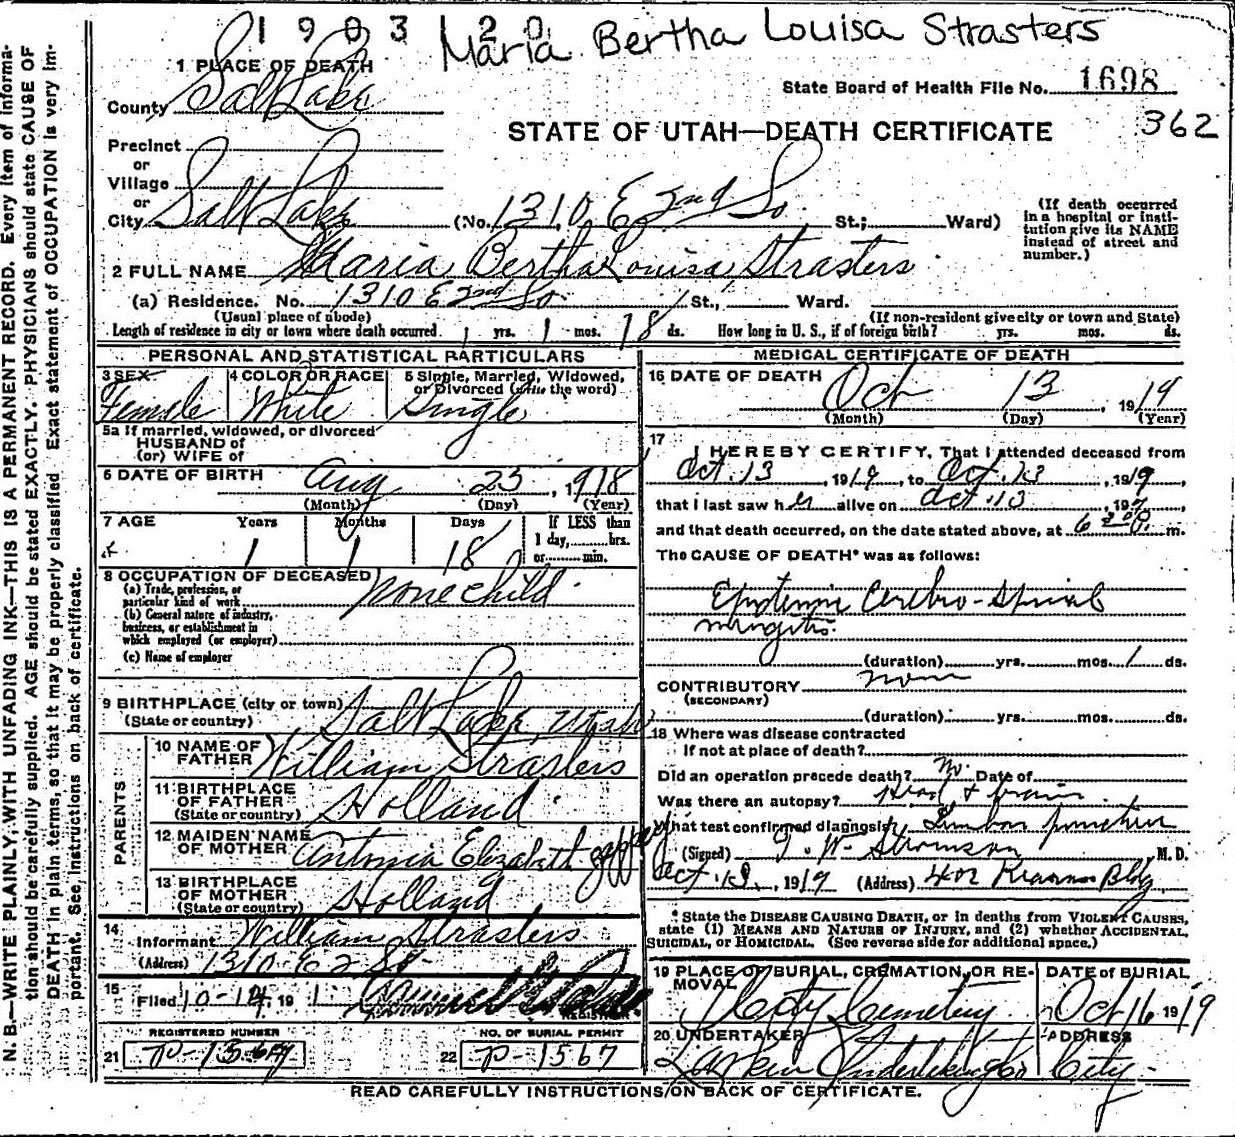 1903 20
Maria Bertha Louisa Strasters
1 PLACE OF DEATH
County Salt Lake
State Board of Health File No. 1698
362
STATE OF UTAH—DEATH CERTIFICATE
Precinct
or
Village
or
City Salt Lake (No. 1310 E 2nd So. St.; Ward)
(If death occurred in a hospital or institution give its NAME instead of street and number.)
2 FULL NAME Maria Bertha Louisa Strasters
(a) Residence. No. 1310 E 2nd So. St., Ward.
(Usual place of abode) (If non-resident give city or town and State)
Length of residence in city or town where death occurred 1 yrs. 1 mos. 18 ds. How long in U. S., if of foreign birth? yrs. mos. ds.
PERSONAL AND STATISTICAL PARTICULARS
3 SEX Female
4 COLOR OR RACE White
5 Single, Married, Widowed, or Divorced (write the word) Single
5a If married, widowed, or divorced
HUSBAND of
(or) WIFE of
6 DATE OF BIRTH Aug 23, 1918
(Month) (Day) (Year)
7 AGE Years Months Days If LESS than
1 1 18 1 day, hrs.
or min.
8 OCCUPATION OF DECEASED none child
(a) Trade, profession, or
particular kind of work
(b) General nature of industry,
business, or establishment in
which employed (or employer)
(c) Name of employer
9 BIRTHPLACE (city or town) Salt Lake, Utah
(State or country)
PARENTS
10 NAME OF FATHER William Strasters
11 BIRTHPLACE OF FATHER Holland
(State or country)
12 MAIDEN NAME OF MOTHER Antonia Elizabeth
13 BIRTHPLACE OF MOTHER Holland
(State or country)
14 Informant William Strasters
(Address) 1310 E 2 So.
15 Filed 10-14, 191
REGISTRAR
REGISTERED NUMBER
21 P-1567
NO. OF BURIAL PERMIT
22 P-1567
MEDICAL CERTIFICATE OF DEATH
16 DATE OF DEATH Oct 13, 1919
(Month) (Day) (Year)
17 I HEREBY CERTIFY, That I attended deceased from
Oct. 13, 1919, to Oct. 13, 1919,
that I last saw her alive on Oct. 13, 191
and that death occurred, on the date stated above, at 6 m.
The CAUSE OF DEATH* was as follows:
Epidemic Cerebro-Spinal
mingitis.
(duration) yrs. mos. 1 ds.
CONTRIBUTORY none
(SECONDARY)
(duration) yrs. mos. ds.
18 Where was disease contracted
If not at place of death?
Did an operation precede death? No. Date of
Was there an autopsy? Head & brain
What test confirmed diagnosis? Lumbar puncture
(Signed) M. D.
Oct. 13, 1919 (Address) 402 Kearns Bldg
* State the DISEASE CAUSING DEATH, or in deaths from VIOLENT CAUSES,
state (1) MEANS AND NATURE OF INJURY, and (2) whether ACCIDENTAL,
SUICIDAL, or HOMICIDAL. (See reverse side for additional space.)
19 PLACE OF BURIAL, CREMATION, OR REMOVAL City Cemetery
DATE OF BURIAL Oct 16 1919
20 UNDERTAKER Larkin Undertaking Co
ADDRESS City
READ CAREFULLY INSTRUCTIONS ON BACK OF CERTIFICATE.
N. B.—WRITE PLAINLY, WITH UNFADING INK—THIS IS A PERMANENT RECORD. Every item of information should be carefully supplied. AGE should be stated EXACTLY. PHYSICIANS should state CAUSE OF DEATH in plain terms, so that it may be properly classified Exact statement of OCCUPATION is very important. See instructions on back of certificate.